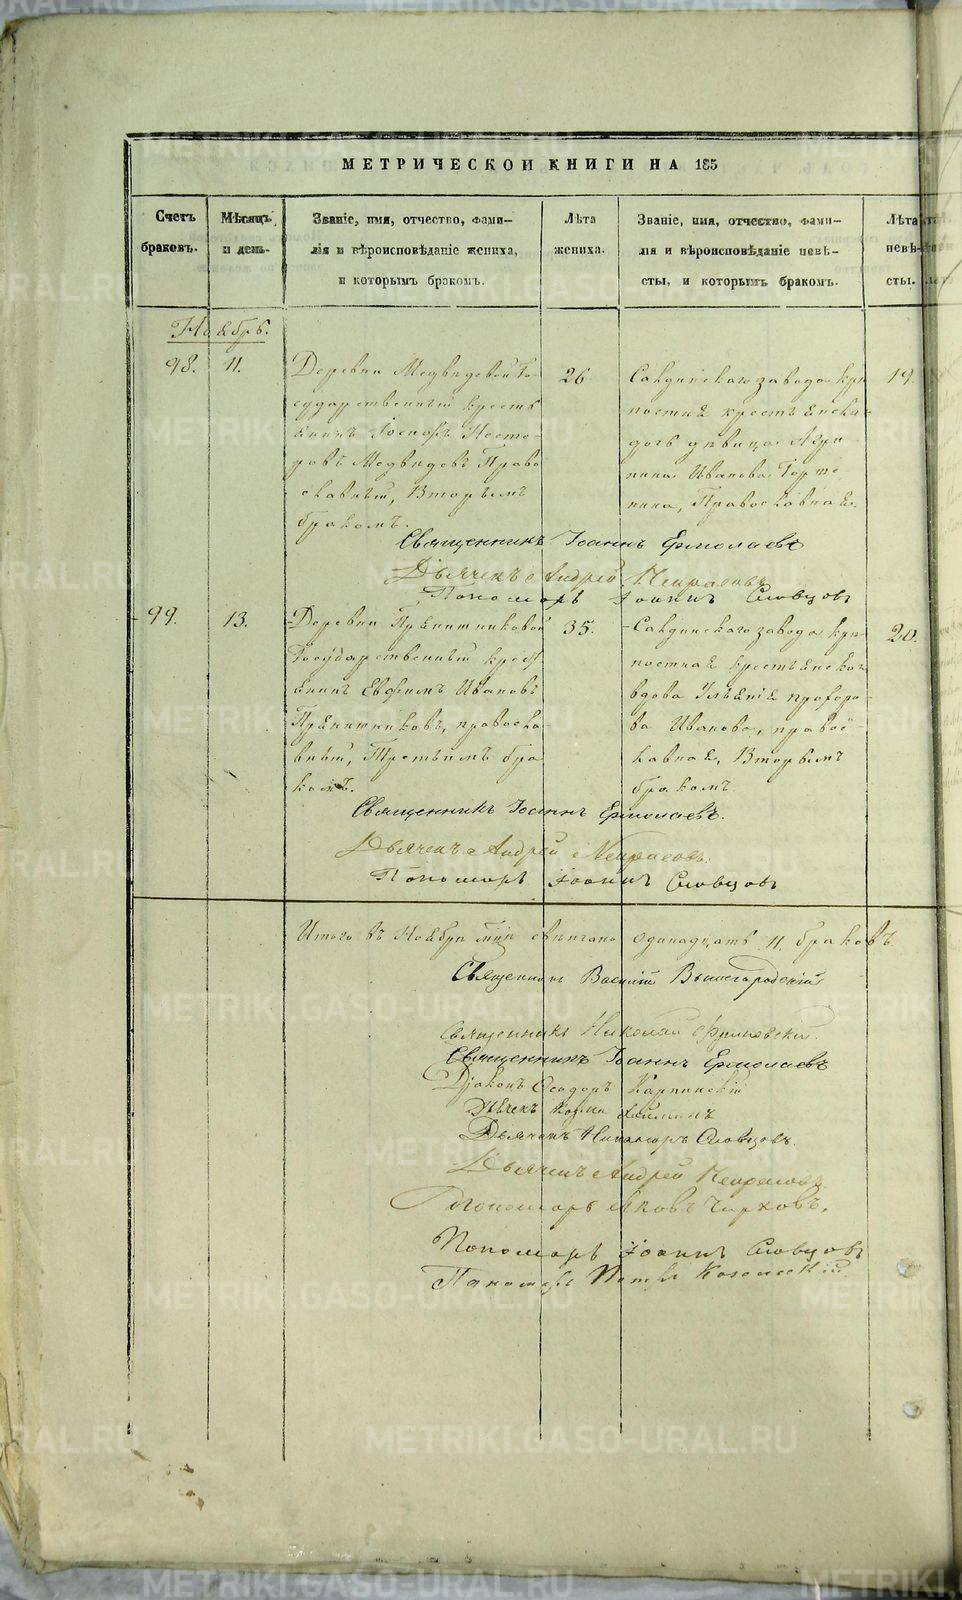 МЕТРИЧЕСКОЙ КНИГИ НА 185
Счетъ браковъ.
Мѣсяцъ и день.
Званіе, имя, отчество, фами-
лія и вѣроисповѣданіе жениха,
и которымъ бракомъ.
Лѣта
жениха.
Званіе, имя, отчество, фами-
лія и вѣроисповѣданіе невѣ-
сты, и которымъ бракомъ.
Лѣта
невѣ-
сты.
Ноябрь.
98. 11.
Деревни Медвѣдевой Го-
сударственный кресть
янинъ Іосифъ Несте-
ровъ Медвѣдевъ Право
славный, Вторымъ
бракомъ.
26
Салдинскаго завода крѣ
постная крестьянска
дочь дѣвица Агри
пина Иванова
Православная.
19.
Священникъ Іоаннъ Ермолаевъ
Дьячекъ Андрей Некрасовъ
Пономарь Іоаннъ Словцовъ
99. 13.
Деревни Прянишниковой
Государственный крест
янинъ Евфимъ Ивановъ
Прянишниковъ, правосла-
вный, Третьимъ бра
комъ.
35.
Салдинскаго завода крѣ-
постная крестьянская
вдова Прохоро-
ва Иванова, правос
лавная, Вторымъ
бракомъ
20.
Священникъ Іоаннъ Ермолаевъ.
Дьячекъ Андрей Некрасовъ.
Пономарь Іоаннъ Словцовъ
Итого въ Ноябрѣ м-цѣ свѣнчано одинадцать 11. браковъ
Священникъ Василій Вышегородскій
Священникъ Николай
Священникъ Іоаннъ Ермолаевъ
Діаконъ Ѳеодоръ Карпинскій
Дьячекъ Козма
Дьячекъ Никаноръ Словцовъ.
Дьячекъ Андрей Некрасовъ
Пономарь Яковъ Чирковъ.
Пономарь Іоаннъ Словцовъ
Пономарь Петръ
METRIKI.GASO-URAL.RU